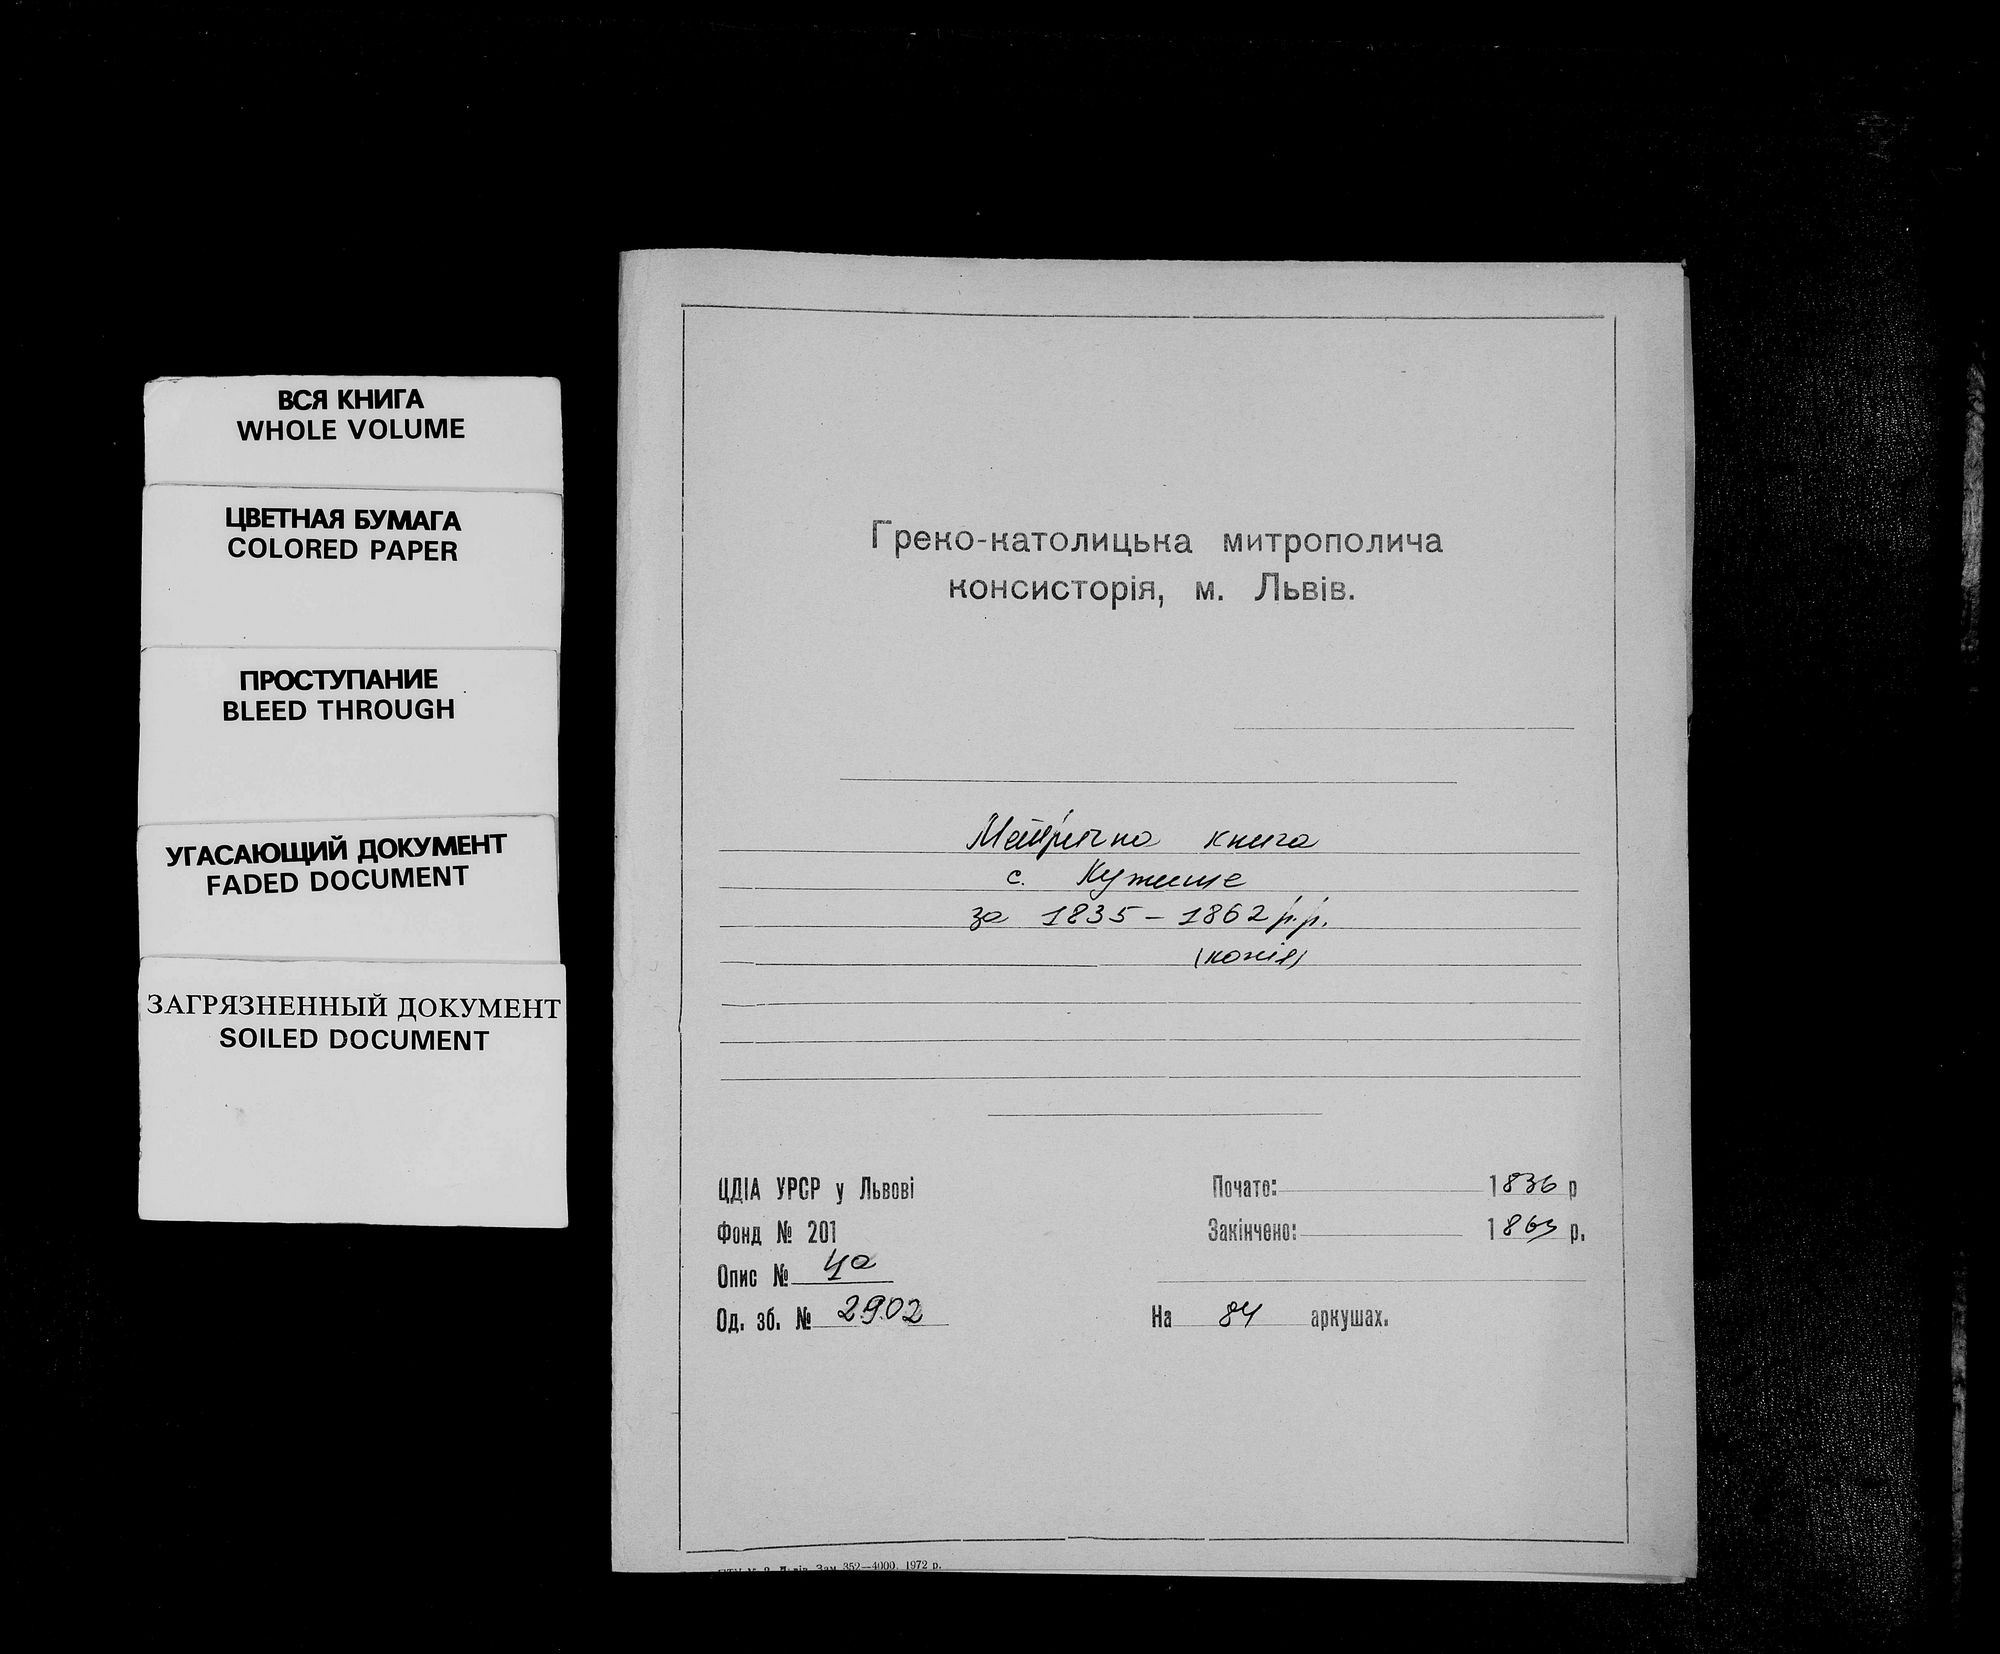 ВСЯ КНИГА
WHOLE VOLUME
ЦВЕТНАЯ БУМАГА
COLORED PAPER
ПРОСТУПАНИЕ
BLEED THROUGH
УГАСАЮЩИЙ ДОКУМЕНТ
FADED DOCUMENT
ЗАГРЯЗНЕННЫЙ ДОКУМЕНТ
SOILED DOCUMENT
Греко-католицька митрополича
консисторія, м. Львів.
Метрична книга
с.
за 1835-1862 р.р.
(копія)
ЦДІА УРСР у Львові
Фонд № 201
Опис № 4а
Од. зб. № 2902
Почато: 1836 р
Закінчено: 1863 р.
На 84 аркушах.
Львів. Зам. 352—4000. 1972 р.